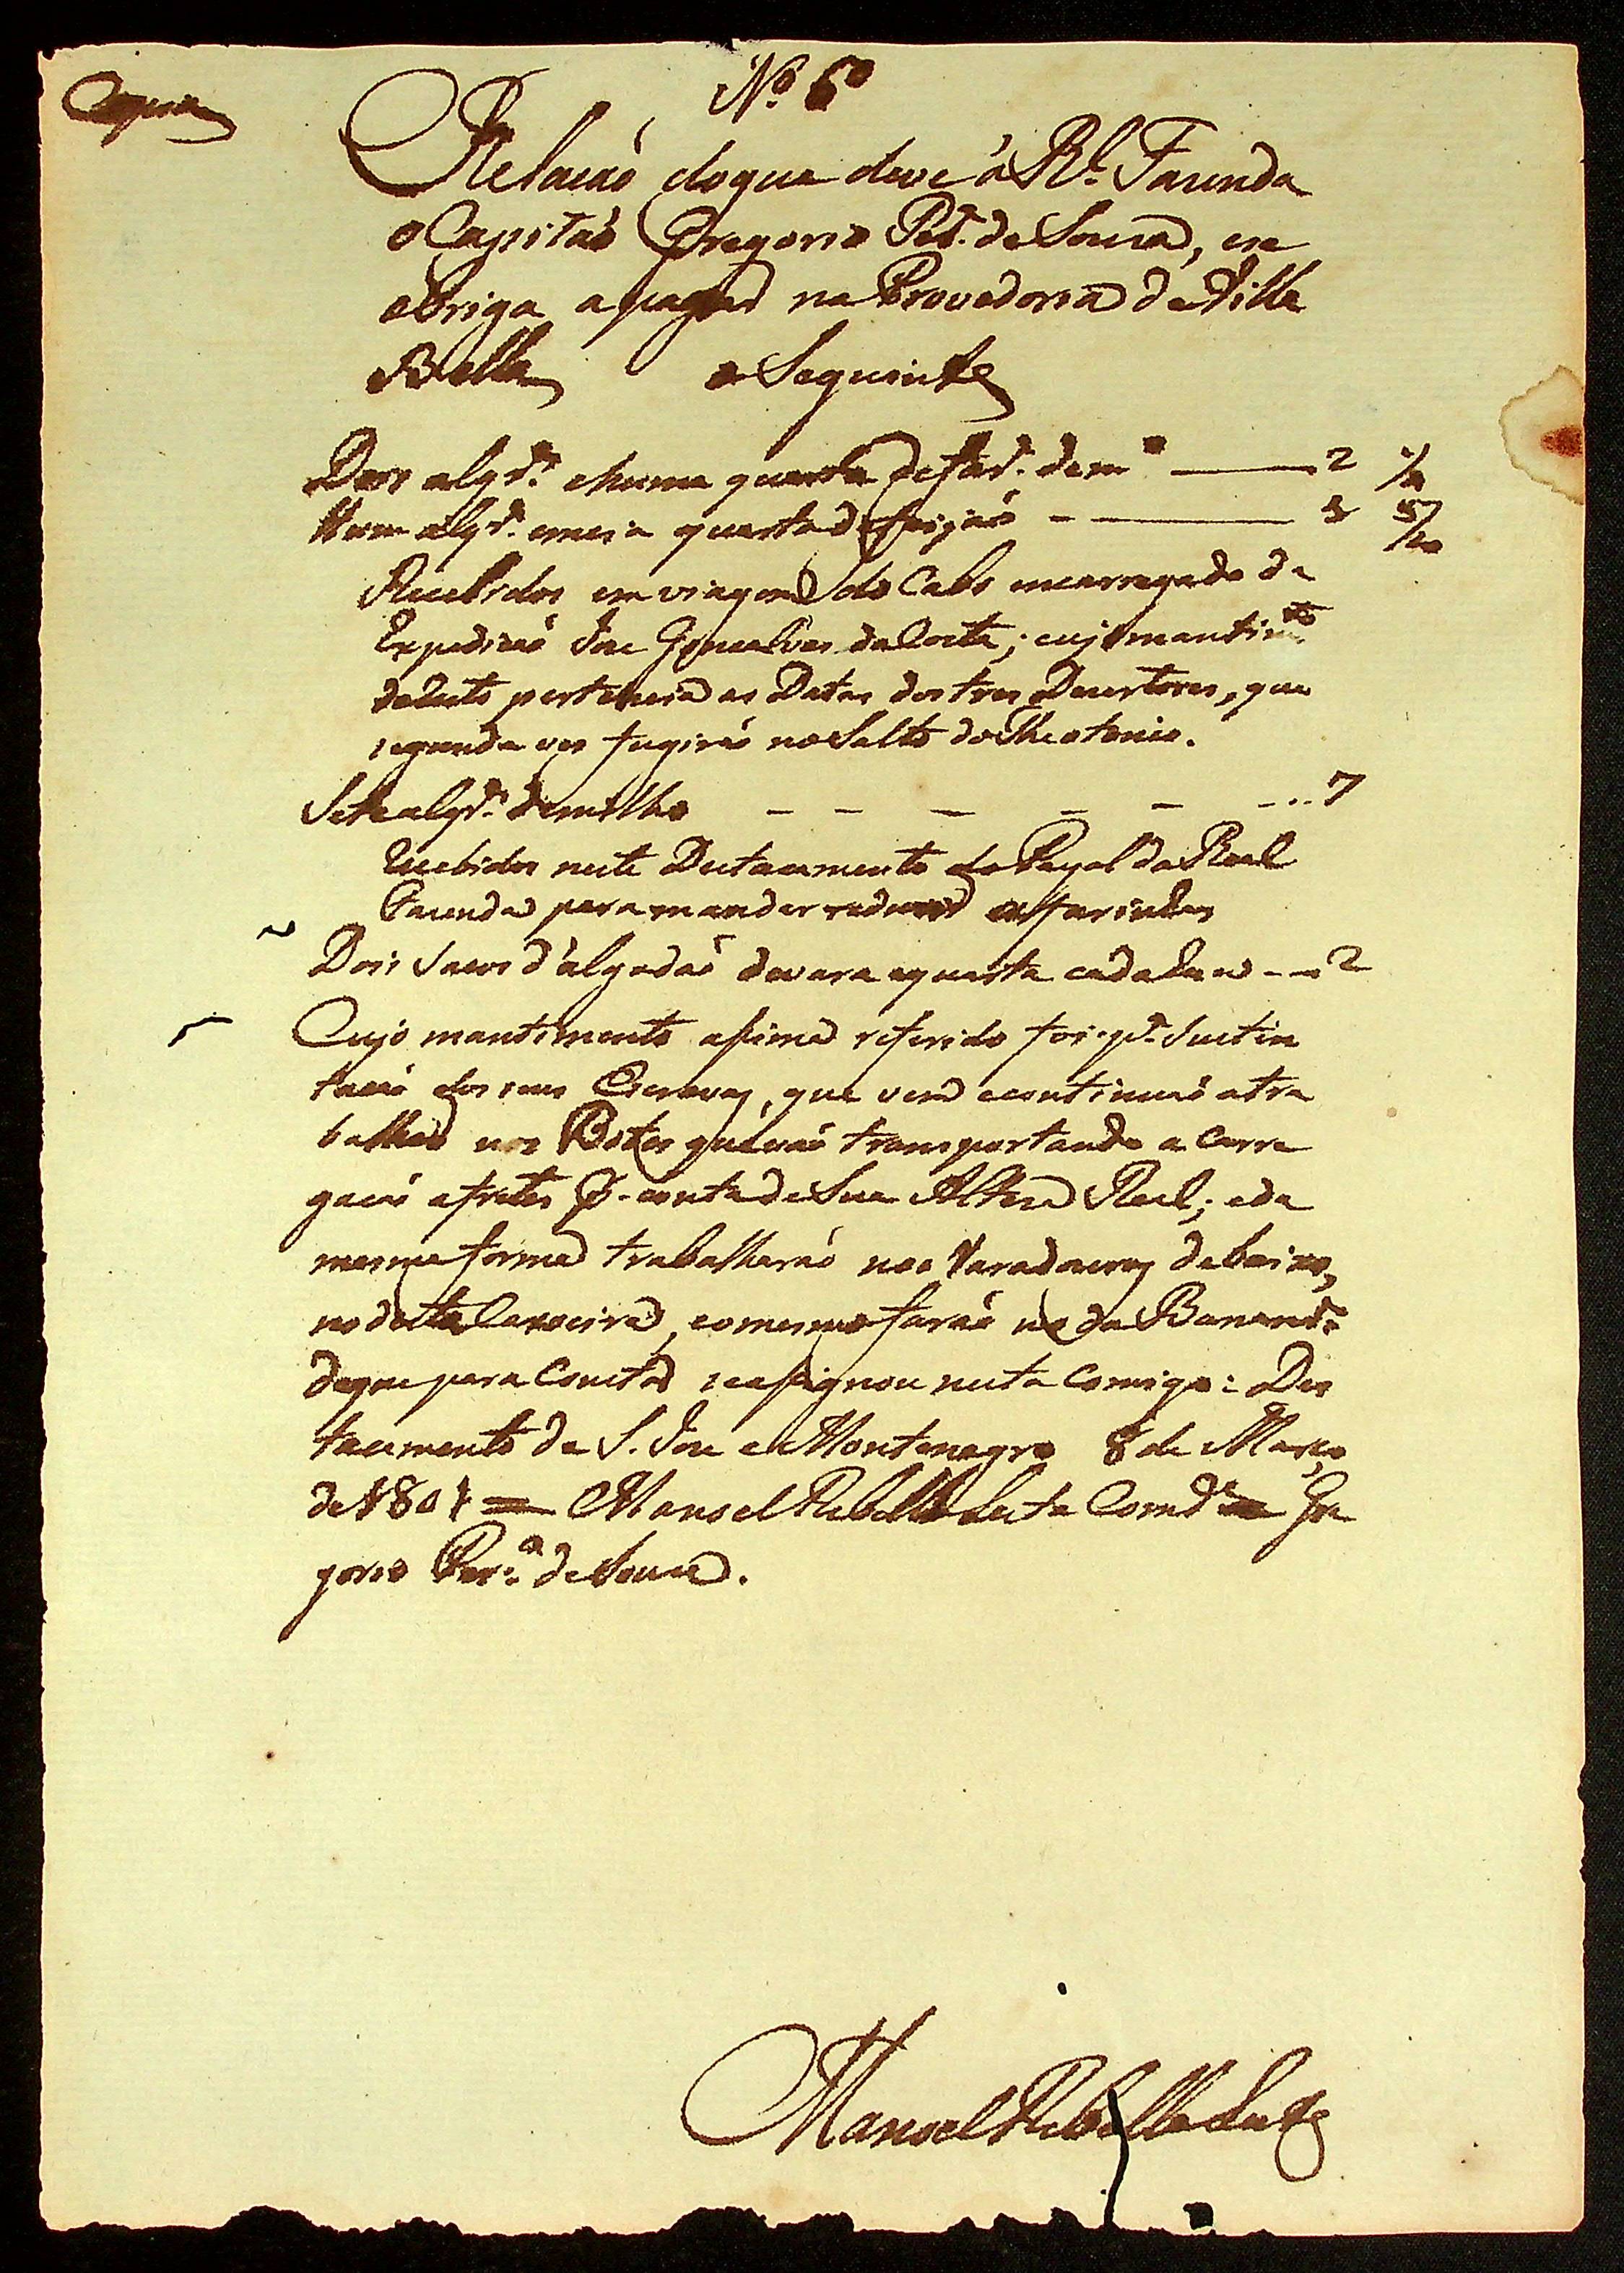 Copia
Nº 6º
Relacaõ do que deve á Rl. Fazenda
o Capitaõ Gregorio Per.ª de Souza, e se
obriga a pagar na Provedoria de Villa
Bella o Seguinte
Dois alqr.es e huma quarta de far.ª de m.º 2 ¼
Hum alqr.e e meia quarta de feijaõ 1
Recebidos em viagem do Cabo encarregado da
Expediçaõ Joze Gonçalves da Costa; cujo mantim.to
pertencia as Datas dos tres Dezertores, que
segunda vez fugiraõ no Salto do Theotonio.
Sete alqr.es de milho 7
Recebidos neste Destacamento do Payol da Real
Fazenda para mandar reduzir a farinha
Dois Sacos d'algodaõ de vara e quarta cada hum 2
Cujo mantimento assima referido foi p.ª sustin
taçaõ dos seus Escravos, que vem e continuaõ a tra
balhar nos Botes que vaõ transportando a carre
gaçaõ a fretes p.r conta de Sua Alteza Real; e da
mesma forma trabalharaõ nos Varadouros debaixo,
no desta Caxoeira, e o mesmo faraõ no da Banan.ra
de que para Constar se assignou nesta Comigo: Des
tacamento de S. Joze e Montenegro 8 de Março
de 1801 = Manoel Rebello Leite Comd.e = Gre
gorio Per.ª de Souza.
Manoel Rebello Leite